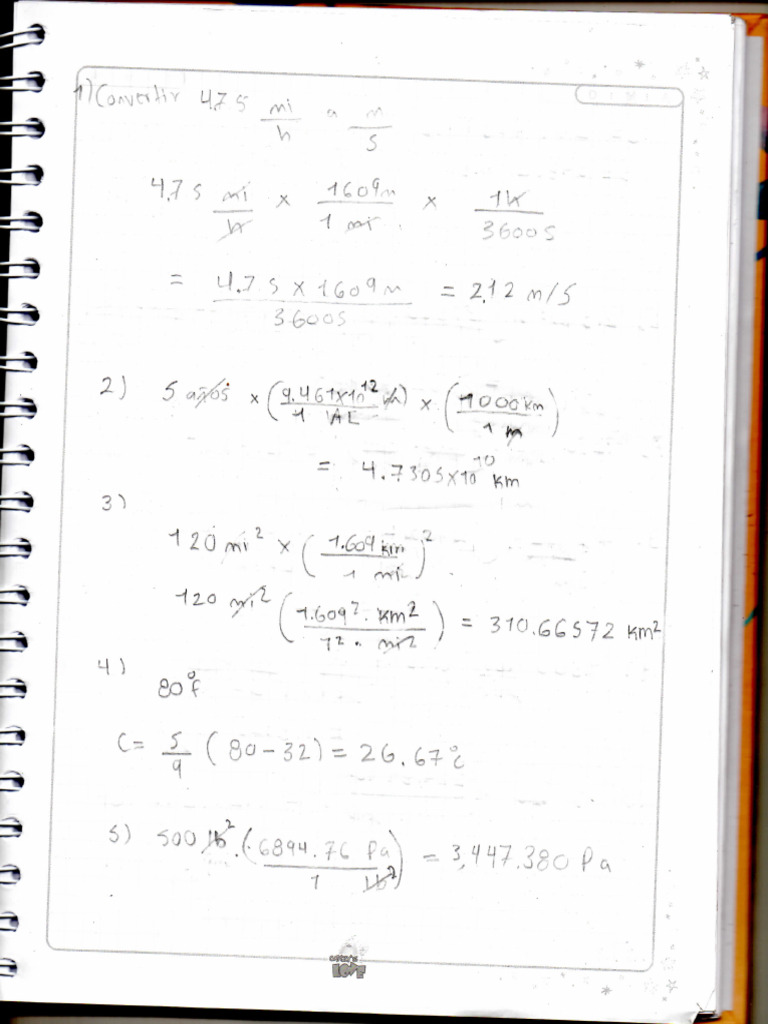 1) Convertir 4.75 mi/h a m/s
4.75 mi/h x 1609m/1 mi x 1h/3600s
= 4.75 x 1609m/3600s = 2.12 m/s
2) 5 años x (9.461x10^12 /1 AL) x (1000km/1 m)
= 4.7305x10^10 km
3)
120 mi^2 x (1.609 km/1 mi)^2
120 mi^2 (1.609^2 . km^2/1^2 . mi^2) = 310.66572 km^2
4)
80°f
C= 5/9 (80-32) = 26.67°c
5) 500 lb^2 . (6894.76 Pa/1 lb^2) = 3,447.380 Pa
LOVE